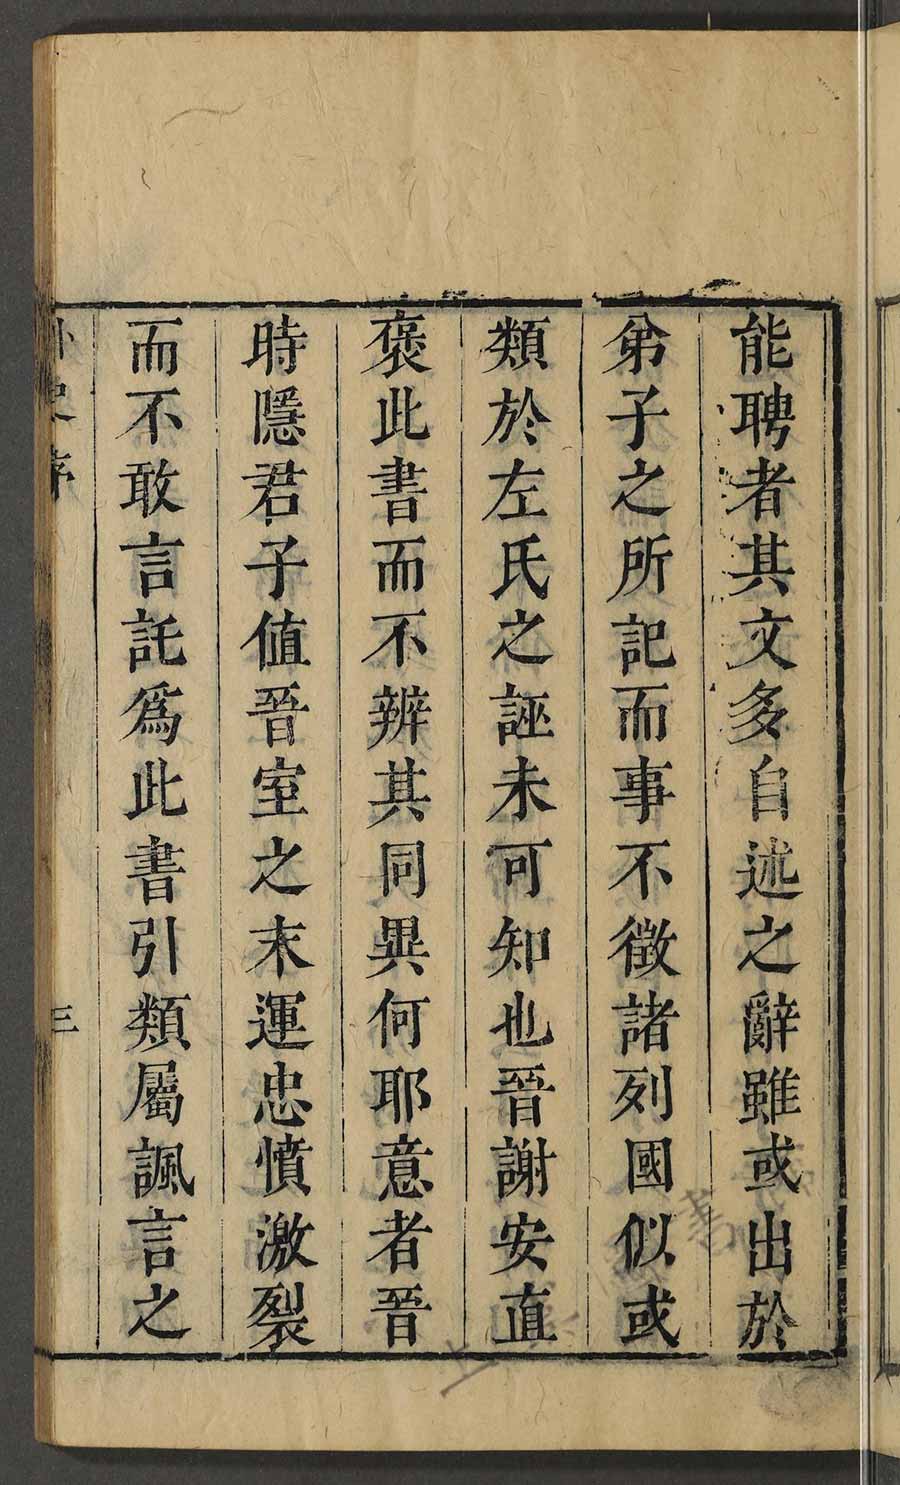 能聘者其文多自述之辭雖或出於
弟子之所記而事不徵諸列國似或
類於左氏之誣未可知也晉謝安直
褒此書而不辨其同異何耶意者晉
時隱君子值晉室之末運忠憤激裂
而不敢言託爲此書引類屬諷言之
外史序
三